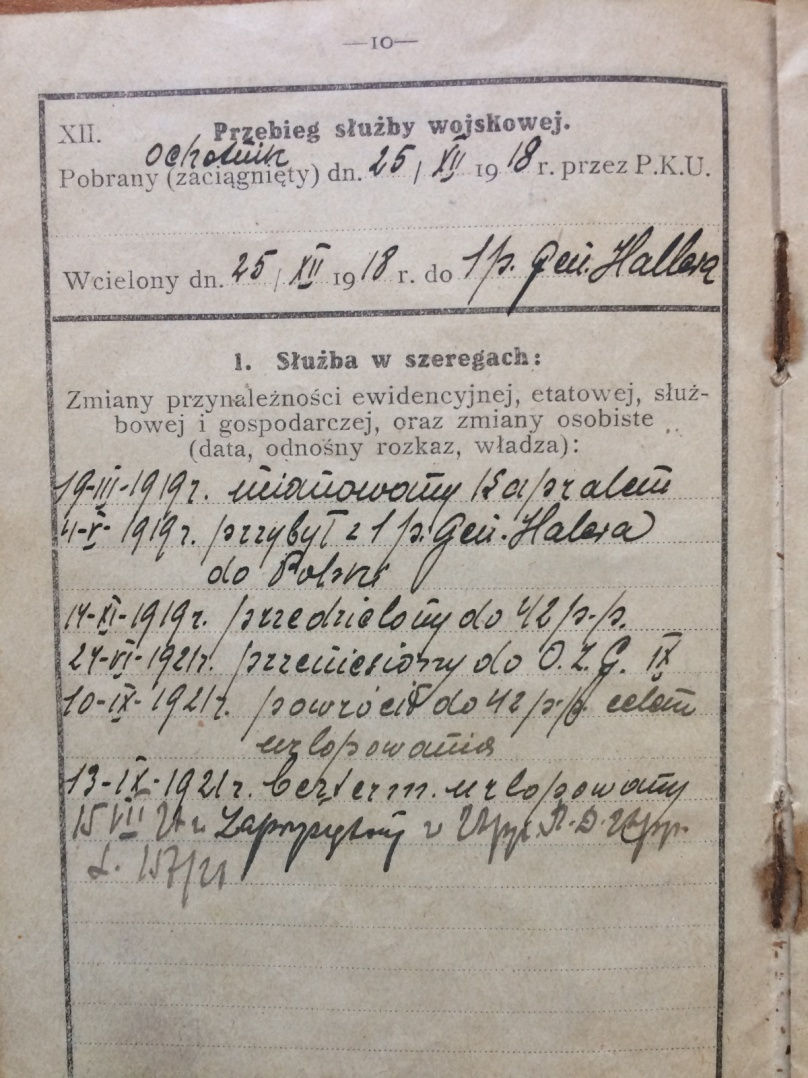 —10—
XII. Przebieg służby wojskowej.
Ochotnik
Pobrany (zaciągnięty) dn. 25/XII 1918 r. przez P.K.U.
Wcielony dn. 25/XII 1918 r. do 1 p. Gen. Hallera
1. Służba w szeregach:
Zmiany przynależności ewidencyjnej, etatowej, służ-
bowej i gospodarczej, oraz zmiany osobiste
(data, odnośny rozkaz, władza):
19-III-1919r. mianowany Kapralem
4-V-1919r. przybył z 1 p. Gen. Halera
do Polski
14-XI-1919r. przedzielony do 42 p.p.
24-VI-1921r. przeniesiony do O.Z.G. IX
10-IX-1921r. powrócił do 42 p.p. celem
urlopowania
13-IX-1921r. bezterm. urlopowany
15 VIII Zaprzysiężony
L. 157/21